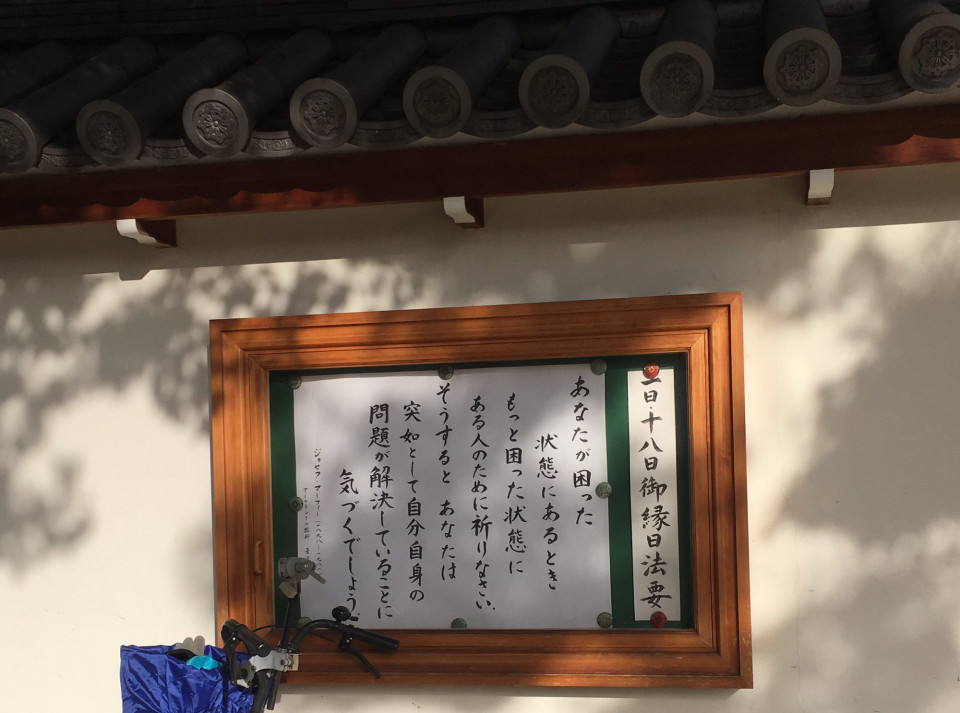 日・十八日御縁日法要
あなたが困った
状態にあるとき
もっと困った状態に
ある人のために祈りなさい。
そうすると あなたは
突如として自分自身の
問題が解決していることに
気づくでしょう。
ジョセフ・マーフィー